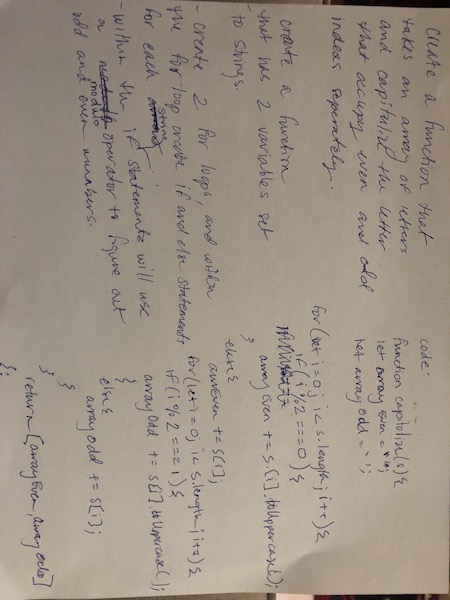 Create a function that
takes an array of letters
and capitalize the letter
that occupy even and odd
indexes seperately.
create a function
that has 2 variables set
to strings.
- create 2 for loops, and within
the for loop create if and else statements
for each string
- within the if statements will use
a modulo operator to figure out
odd and even numbers.
code:
function capitolize(s){
let array Even = '';
let array odd = '';
for(let i=0; i<s.length; i++){
if(i%2===0){
array Even += s.[i].toUppercase();
}
else{
array Even += s[i];
for(let i=0; i<s.length; i++){
if(i%2===1){
array Odd += s[i].toUppercase();
}
else{
array odd += s[i];
}
}
return [array Even, array odd]
};